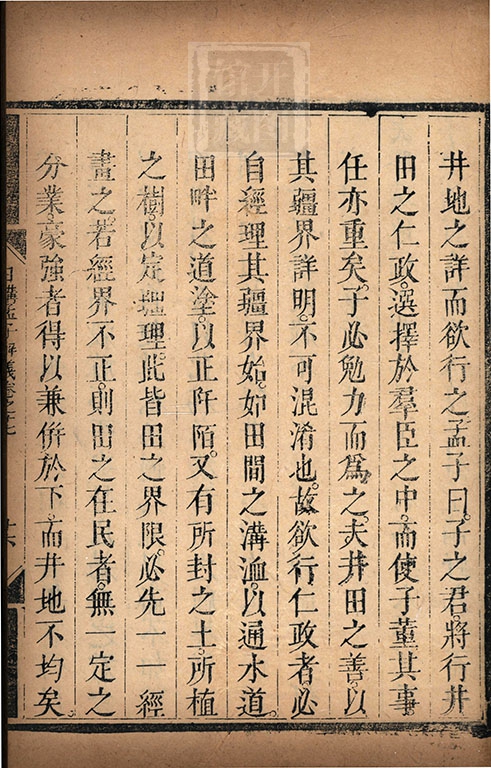 井地之詳而欲行之孟子曰子之君將行井
田之仁政選擇於羣臣之中而使子董其事
任亦重矣子必勉力而爲之夫井田之善以
其疆界詳明不可混淆也故欲行仁政者必
自經理其疆界始如田間之溝洫以通水道
田畔之道塗以正阡陌又有所封之土所植
之樹以定疆理此皆田之界限必先一一經
畫之若經界不正則田之在民者無一定之
分業豪強者得以兼併於下而井地不均矣